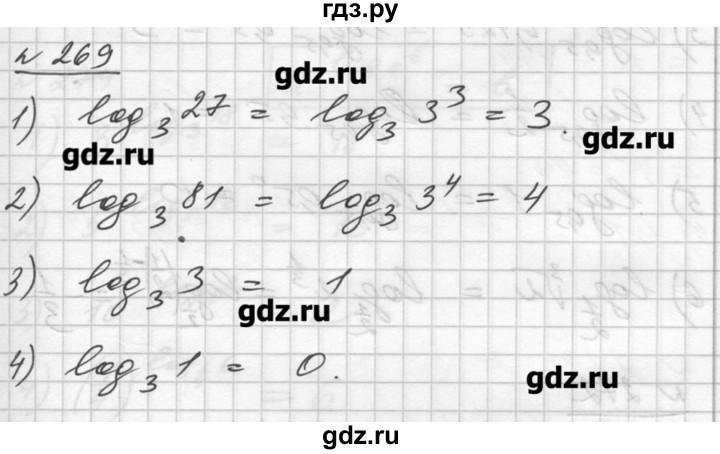 гдз.ру
№ 269
gdz.ru
1) log₃ 27 = log₃ 3³ = 3.
gdz.ru
gdz.ru
2) log₃ 81 = log₃ 3⁴ = 4
3) log₃ 3 = 1
gdz.ru
4) log₃ 1 = 0.
gdz.ru
gdz.ru